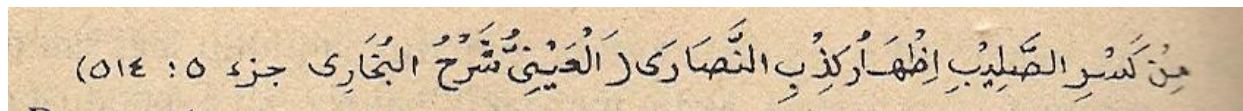 مِنْ كَسْرِ الصَّلِيْبِ اِظْهَارُ كِذْبِ النَّصَارَى (اَلْعَيْنِىُّ شَرْحُ البُخَارِى جزء ٥ : ٥١٤)